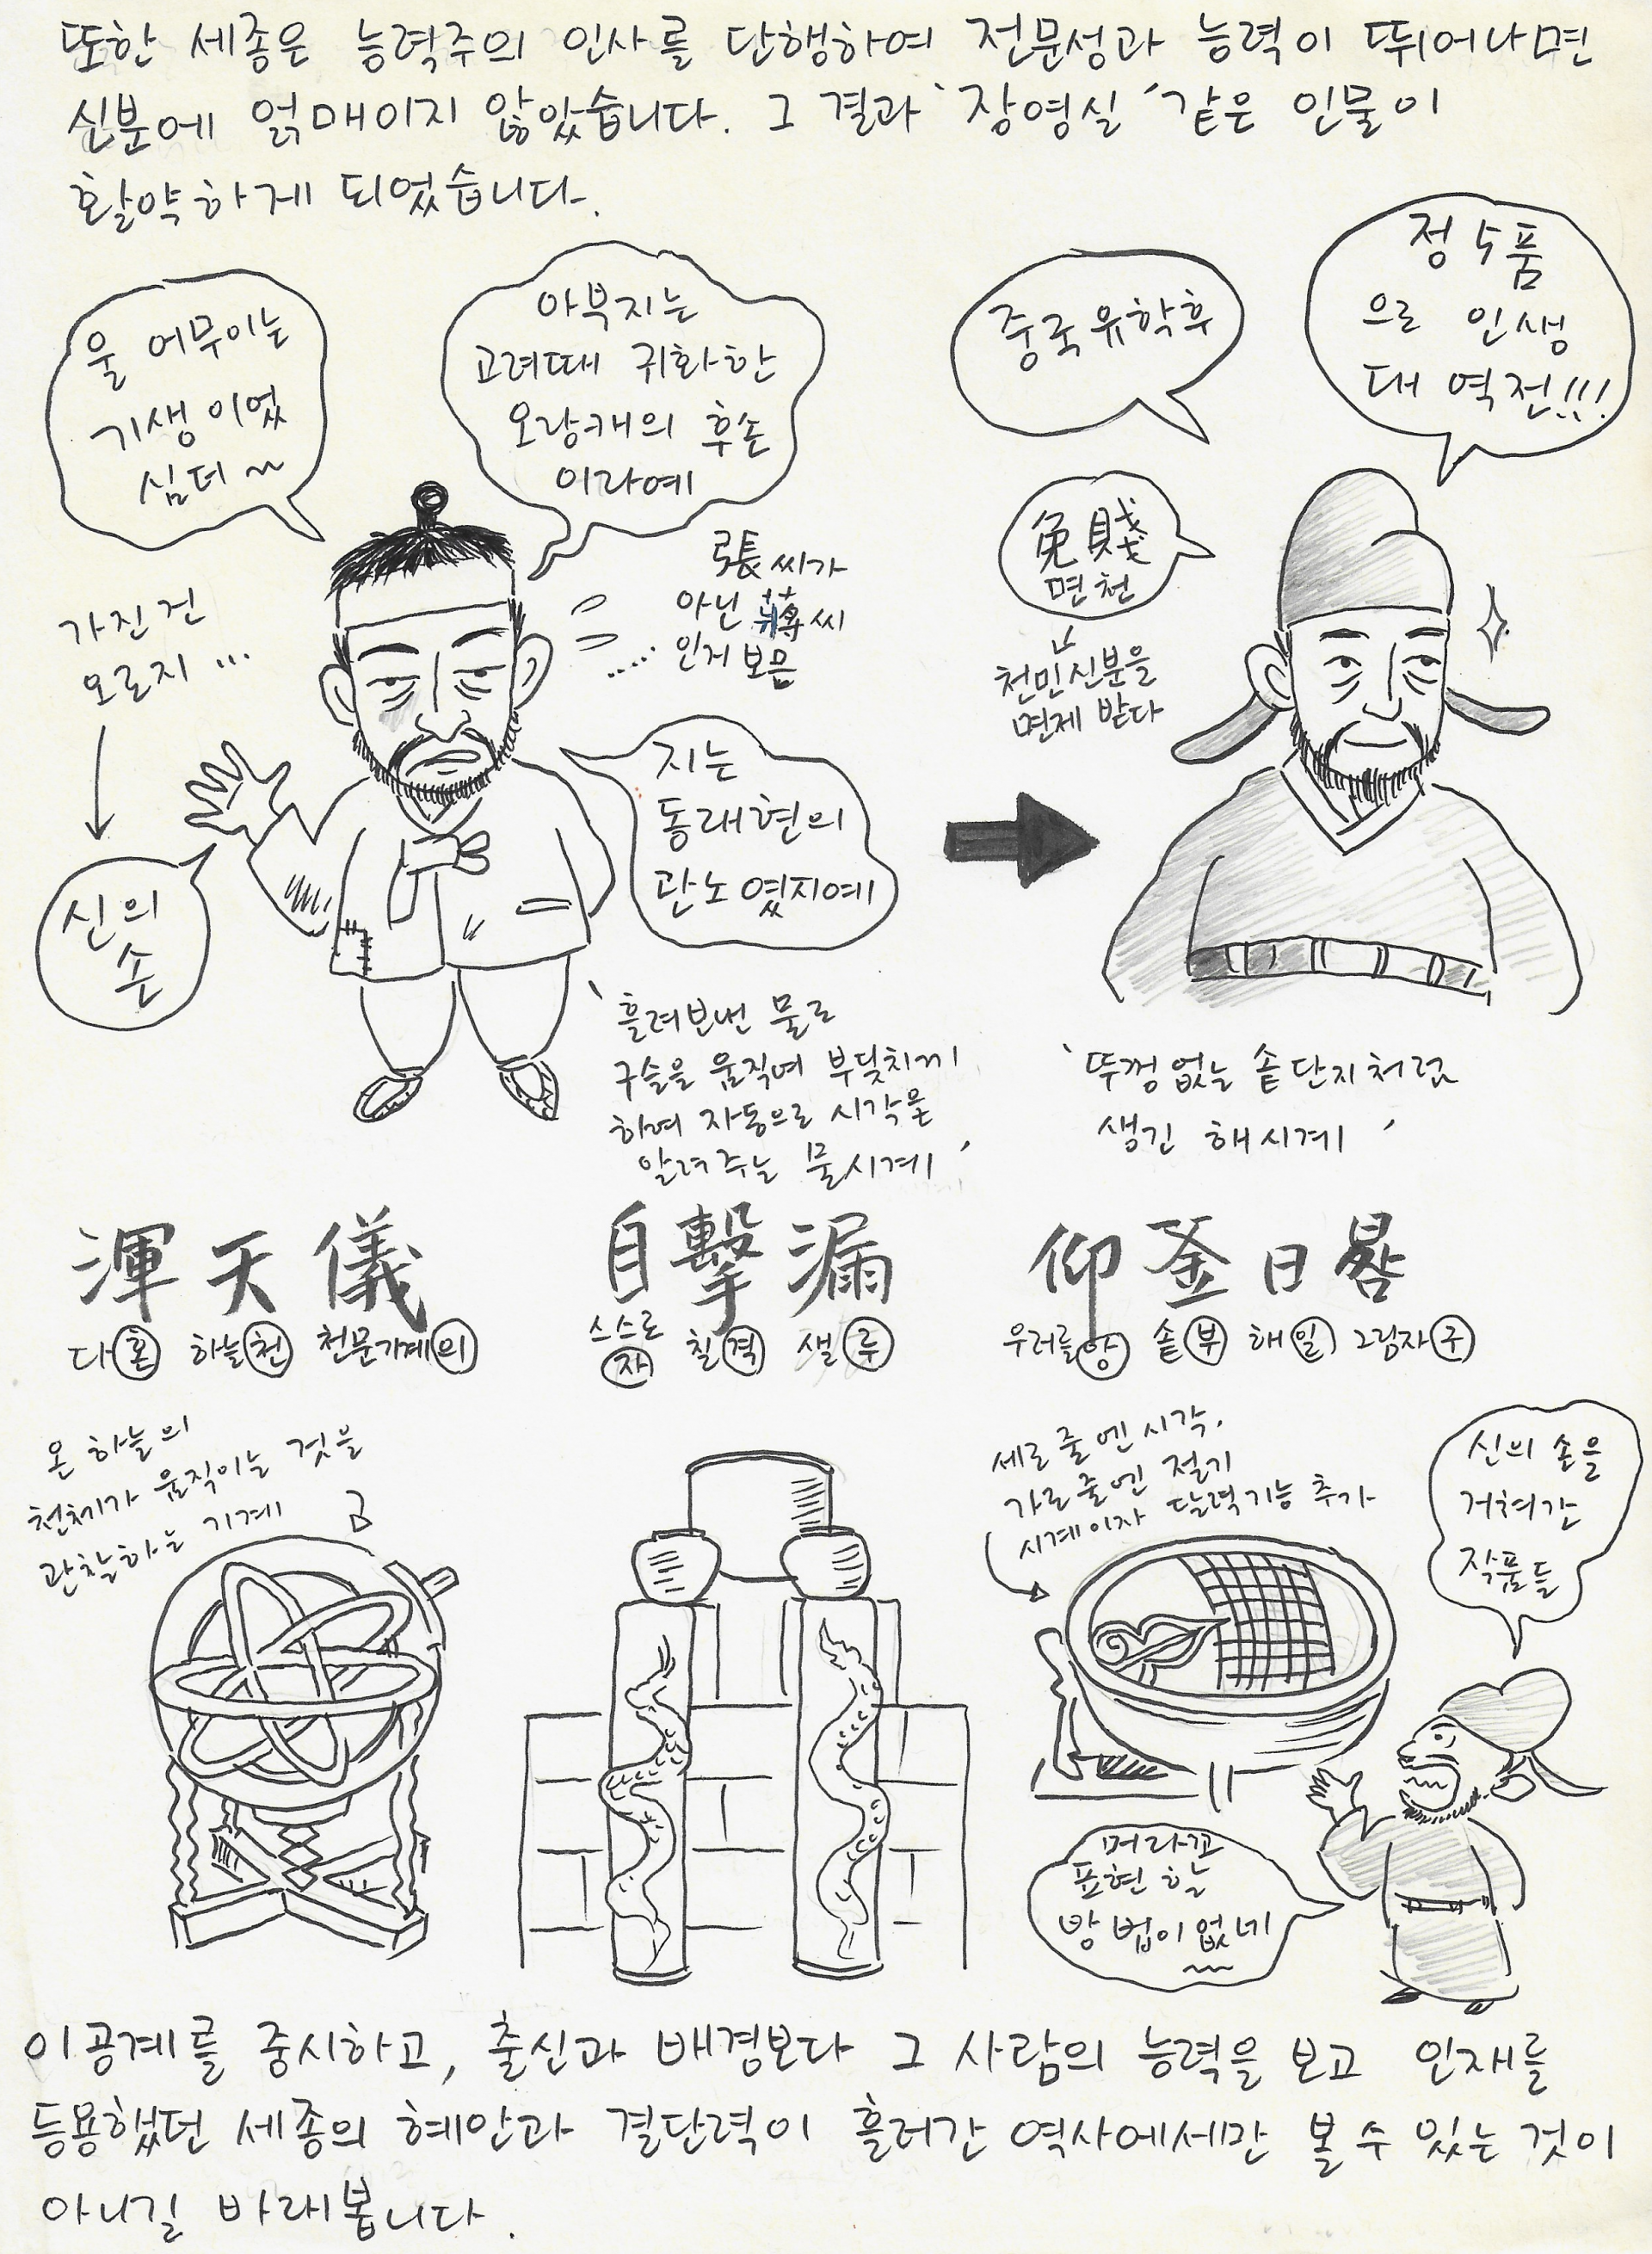 또한 세종은 능력주의 인사를 단행하여 전문성과 능력이 뛰어나면
신분에 얽매이지 않았습니다. 그 결과 '장영실' 같은 인물이
활약하게 되었습니다.
울 어무이는
기생이었
심더~
아부지는
고려때 귀화한
오랑캐의 후손
이라예
張씨가
아닌 蔣씨
인거 보믄
.....
가진건
오로지 ...
신의
손
지는
동래현의
관노였지예
중국유학후
정5품
으로 인생
대역전!!!
免賤
면천
천민신분을
면제 받다
'흘려보낸 물로
구슬을 움직여 부딪치게
하여 자동으로 시각을
알려주는 물시계'
'뚜껑없는 솥단지처럼
생긴 해시계'
渾天儀
다 혼 하늘 천 천문기계 의
온 하늘의
천체가 움직이는 것을
관찰하는 기계
自擊漏
스스로
자 칠 격 샐 루
仰釜日晷
우러를 앙 솥 부 해 일 그림자 구
세로줄엔 시각,
가로줄엔 절기
시계이자 달력기능 추가
신의 손을
거쳐간
작품들
머라꼬
표현 할
방법이 없네
~~
이공계를 중시하고, 출신과 배경보다 그 사람의 능력을 보고 인재를
등용했던 세종의 혜안과 결단력이 흘러간 역사에서만 볼 수 있는 것이
아니길 바래봅니다.